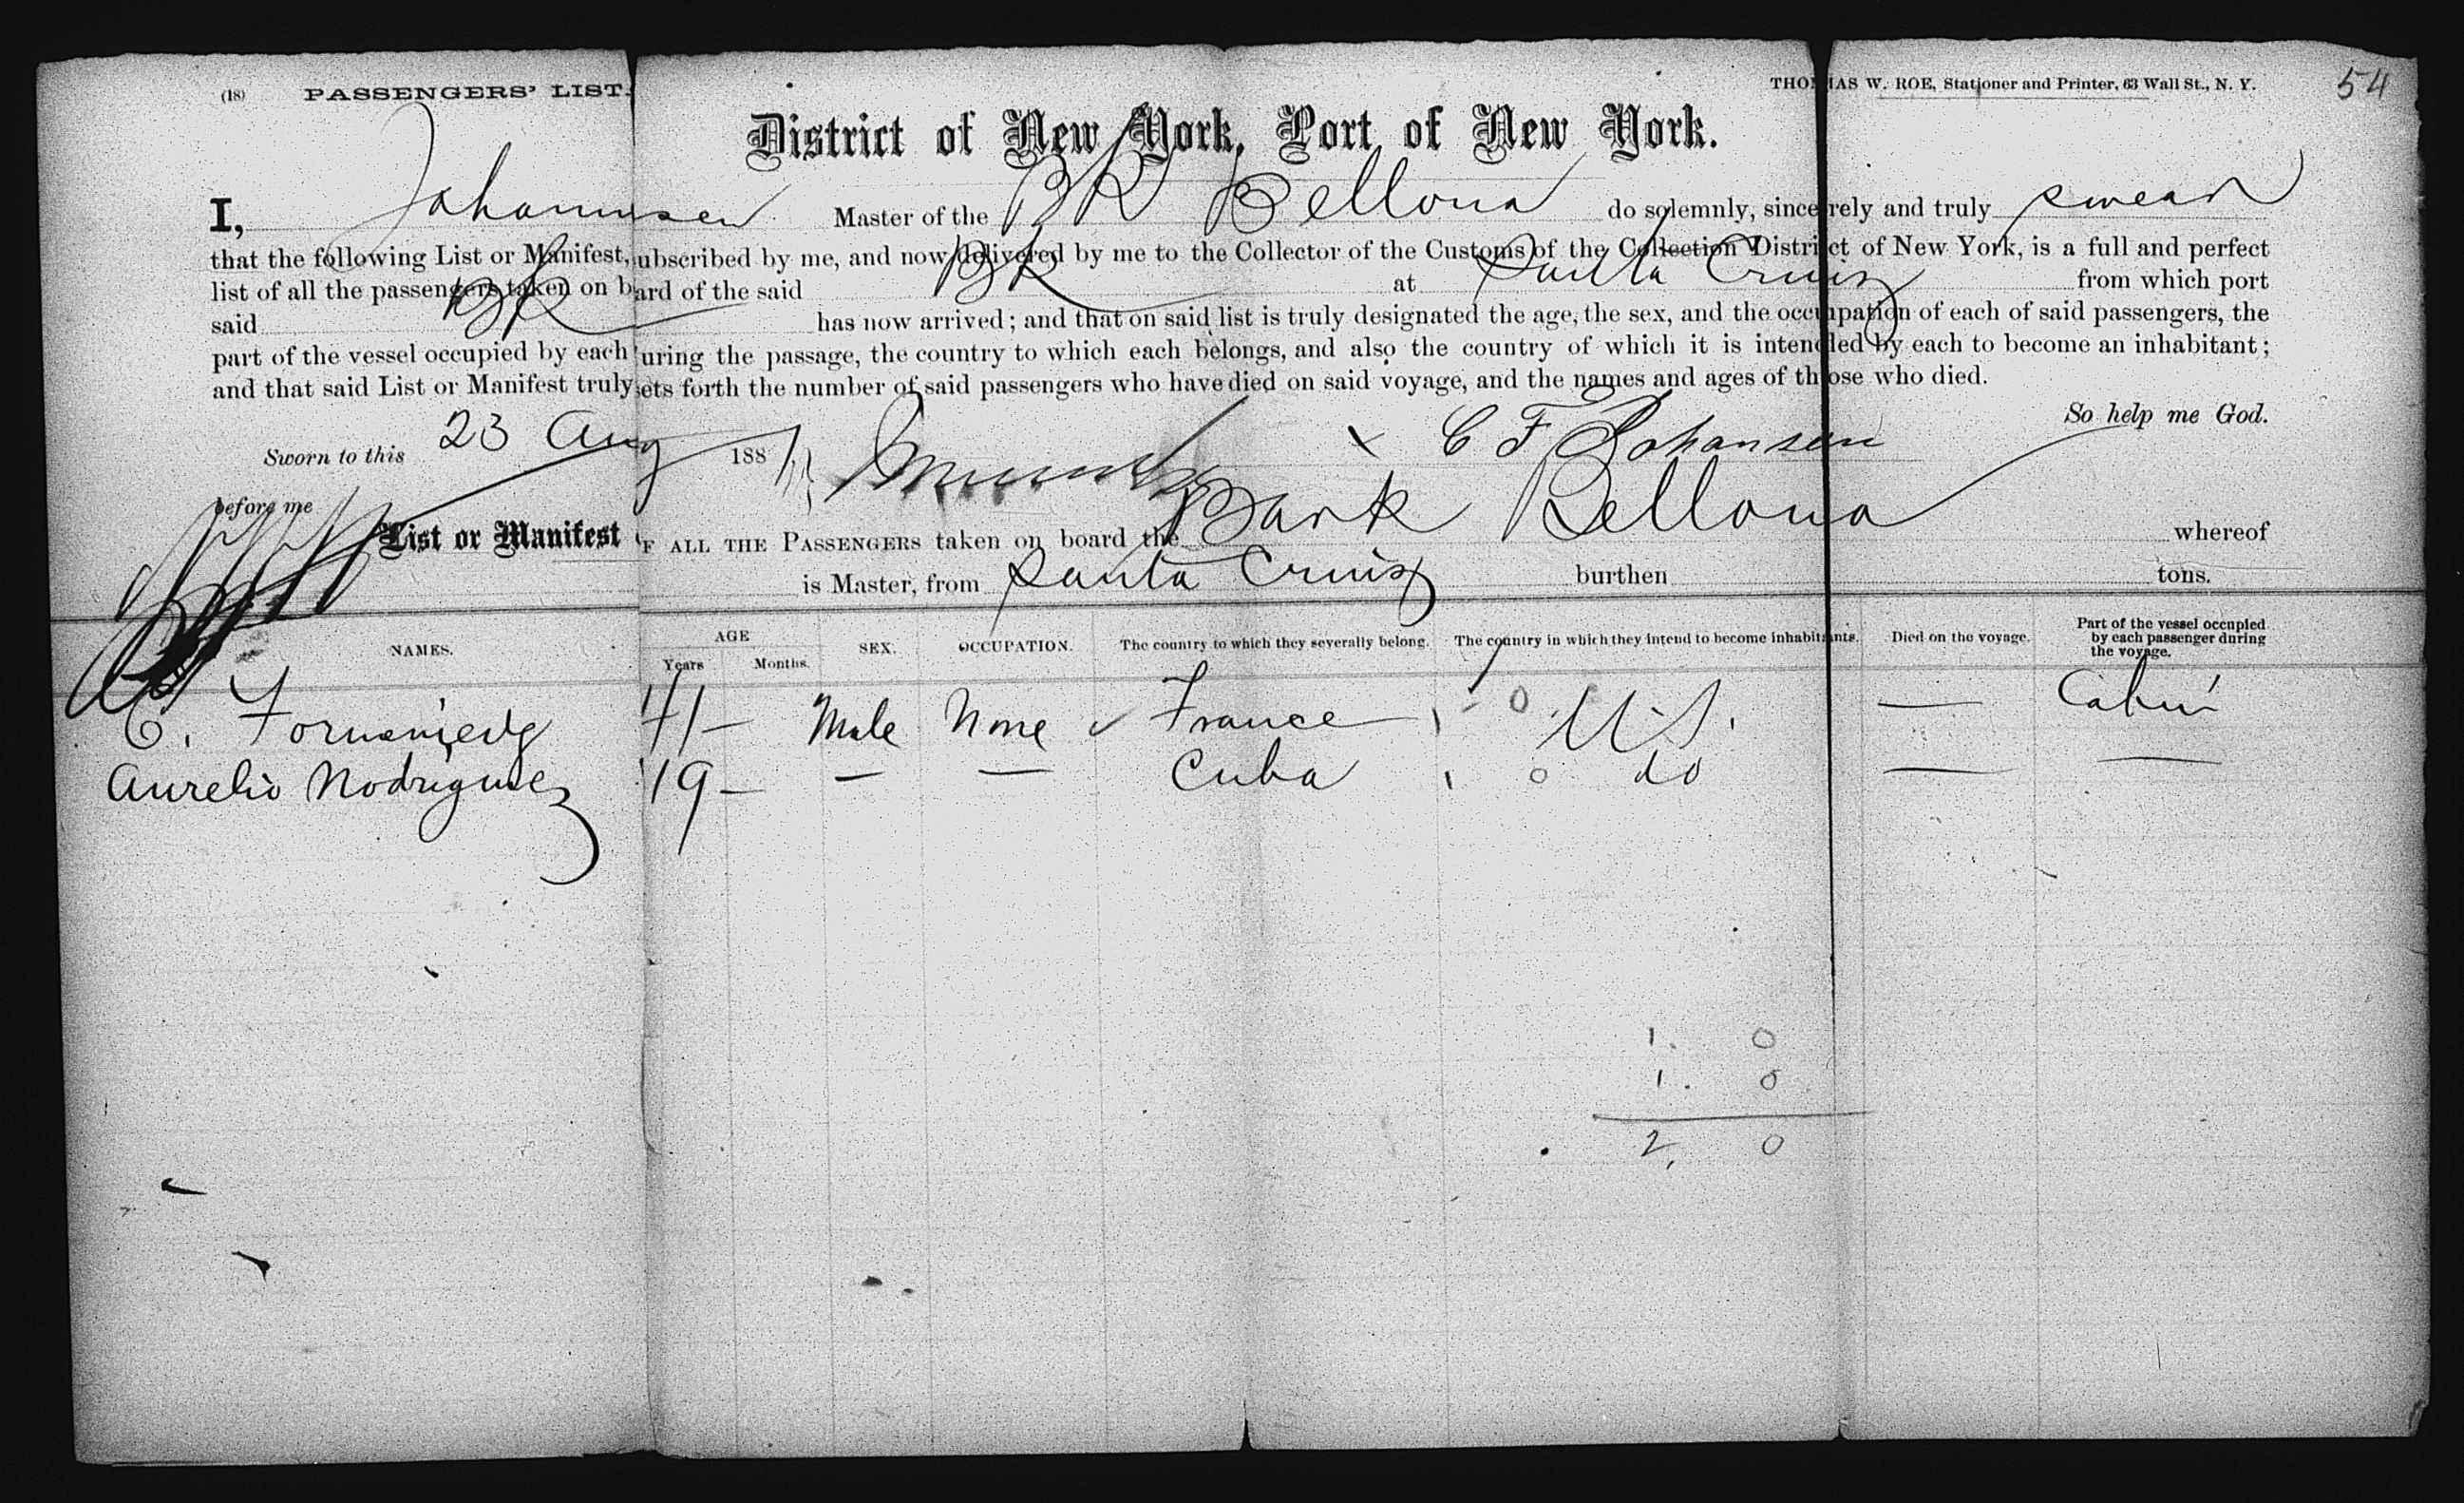 (18) PASSENGERS' LIST. THOMAS W. ROE, Stationer and Printer, 63 Wall St., N. Y. 54
District of New York, Port of New York.
I, Johannsen Master of the BK Bellona do solemnly, sincerely and truly swear
that the following List or Manifest, ubscribed by me, and now delivered by me to the Collector of the Customs of the Collection District of New York, is a full and perfect
list of all the passengers taken on b ard of the said BK at Santa Cruz from which port
said BK has now arrived; and that on said list is truly designated the age, the sex, and the occupation of each of said passengers, the
part of the vessel occupied by each uring the passage, the country to which each belongs, and also the country of which it is intended by each to become an inhabitant;
and that said List or Manifest truly ets forth the number of said passengers who have died on said voyage, and the names and ages of those who died.
So help me God.
Sworn to this 23 Aug 188 x C F Johansen
before me
List or Manifest OF ALL THE PASSENGERS taken on board the Bark Bellona whereof
is Master, from Santa Cruz burthen tons.
NAMES. AGE Years Months. SEX. OCCUPATION. The country to which they severally belong. The country in which they intend to become inhabitants. Died on the voyage. Part of the vessel occupied by each passenger during the voyage.
C. 41 — Male None ✓ France 1 0 U.S. — Cabin
Aurelio Rodriguez 19 — — — Cuba 1 0 do — —
1. 0
1. 0
2. 0